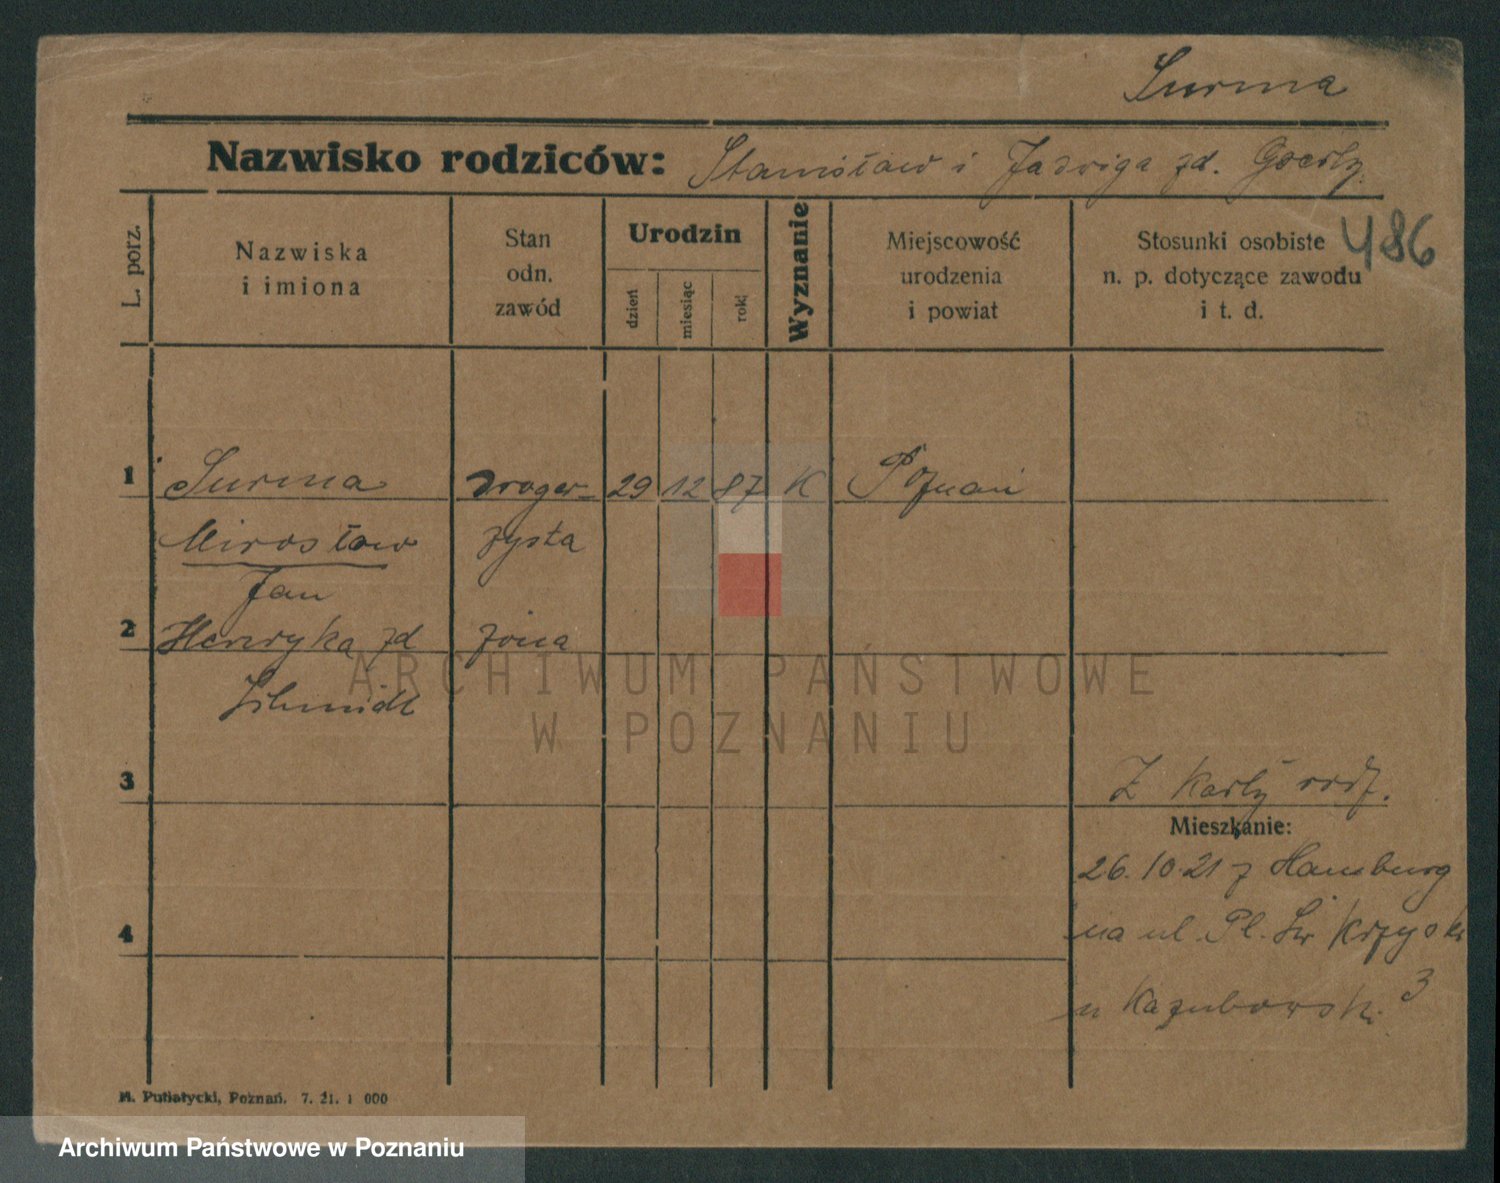 Surma
Nazwisko rodziców: Stanisław i Jadwiga zd.
486
L. porz.
Nazwiska
i imiona
Stan
odn.
zawód
Urodzin
dzień
miesiąc
rok
Wyznanie
Miejscowość
urodzenia
i powiat
Stosunki osobiste
n. p. dotyczące zawodu
i t. d.
1 Surma droger- 29 12 87 K Poznań
Mirosław zysta
Jan
2 Henryka zd żona
Schmidt
3 Z karty rodz.
Mieszkanie:
26.10 21 z Hamburg
4 na ul. Pl. Św Krzyski
3
u Kazubowski
M. Putiatycki, Poznań. 7. 21. 1 000
ARCHIWUM PAŃSTWOWE
W POZNANIU
Archiwum Państwowe w Poznaniu